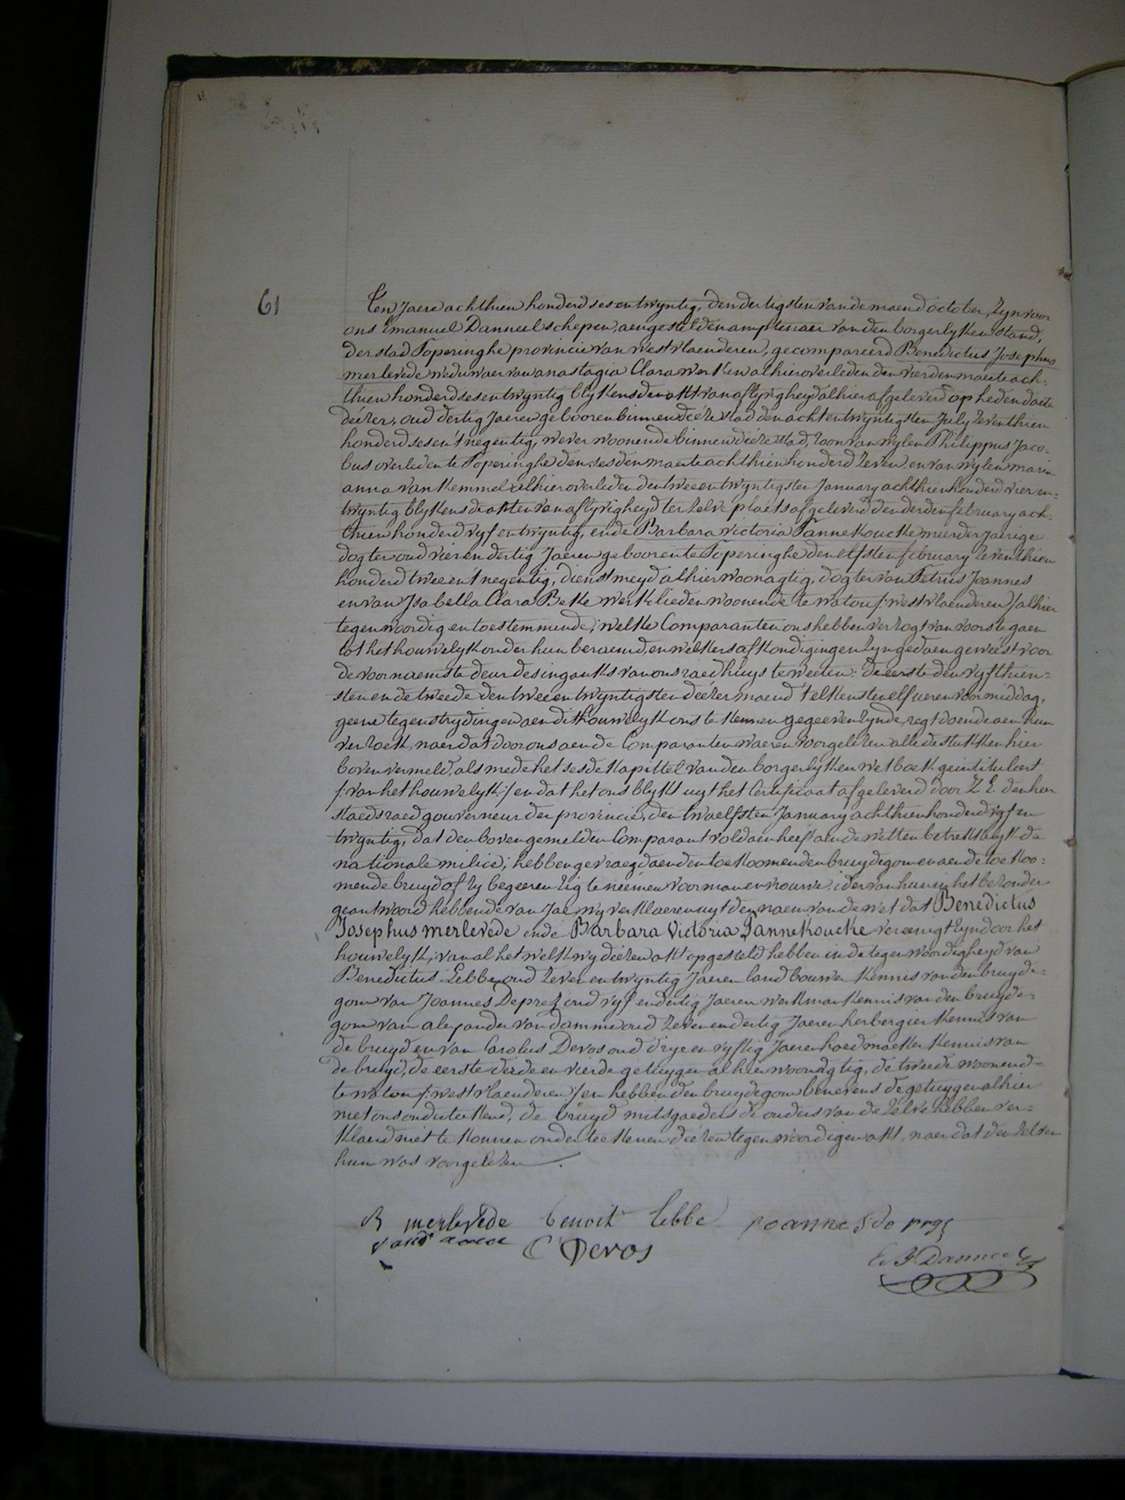 61
Ten Jaere achthien honderd ses en twyntig, den dertigsten van de maend october, zyn voor
ons Emanuel Danneel schepen, aengestelden amptenaer van den borgerlyken stand,
der stad Poperinghe provincie van westvlaenderen, gecompareerd Benedictus Josephus
merlevede weduwaer van anastagia Clara werken alhier overleden den vierden maerte ach-
thien honderd ses en twyntig blykens den akt van aflyvigheyd alhier afgeleverd op heden date
dezer, oud dertig Jaeren geboren binnen dieze stad den acht en twyntigsten July zeventhien
honderd ses en 't negentig, wever woonende binnen dieze stad, zoon van wylen Philippus Jaco-
bus overleden te Poperinghe den sesden maerte achthien honderd zeven, en van wylen maria
anna van Kemmel alhier overleden den twee en twyntigsten January achthien honderd vier en
twyntig blykens de akten van aflyvigheyd ter zelve plaets afgeleverd den derden february ach-
thien honderd vyf en twyntig, ende Barbara victoria Pannekoucke meerderjaerige
dogter oud vier en dertig Jaeren geboren te Poperinghe den elfsten february zeventhien
honderd twee en 't negentig, dienstmeyd alhier woonagtig, dogter van Petrus Joannes
en van Isabella Clara Beke werklieden woonende te watou /: westvlaenderen :/ alhier
tegenwoordig en toestemmende; welke Comparanten ons hebben verzogt van voorstegaen
tot het houwelyk onder hun beraemd en welkers afkondigingen zyn gedaen geweest voor
de voornaemste deur des ingank's van ons raedhuys te weten: de eerste den vyfthien-
sten en de tweede den twee en twyntigsten dezer maend t' elkens ten elf ueren voormiddag,
geene tegenstrydingen aen dit houwelyk ons te kennen gegeeven zynde, regt doende aen hun
verzoek, naer dat door ons aen de Comparanten waeren voorgelezen alle de stukken hier
boven vermeld, als mede het sesde kapittel van den borgerlyken wetboek geintituleert
/: van het houwelyk :/ en dat het ons blykt uyt het Certificaet afgeleverd door Z E. den heer
staedsraed gouverneur der provincie, den twaelfsten January achthien honderd vyf en
twyntig, dat den bovengemelden Comparant voldaen heeft aen de wetten betrekkelyk de
nationale milice; hebben gevraegd aen den toekoomenden bruydegom en aen de toekoo-
mende bruyd of zy begeeren zig te neemen voor man en vrouwe; ider van hun in het bezonder
geantwoord hebbende van Jae, wy verklaeren uyt den naem van de wet dat Benedictus
Josephus merlevede ende Barbara Victoria Pannekoucke vereenigt zyn door het
houwelyk; van al het welk wy diezen akt opgesteld hebben in de tegenwoordigheyd van
Benedictus Lebbe oud zeven en twyntig Jaeren landbouwer kennis van den bruyde-
gom van Joannes Deprez oud vyf en dertig Jaeren werkman kennis van den bruyde-
gom van alexander van damme oud zeven en dertig Jaeren herbergier kennis van
de bruyd en van Carolus Devos oud drye en vyftig Jaeren hoedmaeker kennis van
de bruyd, de eerste derde en vierde getuygen alhier woonagtig, de tweede woonend-
te watou /: westvlaenderen :/ en hebben den bruydegom benevens de getuygen alhier
met ons onderteekend, de bruyd mitsgaeders de ouders van de zelve hebben ver-
klaerd niet te konnen onderteekenen diezen tegenwoordigen akt, naer dat den zelven
hun was voorgelezen
B merlevede benoit lebbe joannes de prez
C Devos
E. J Danneel